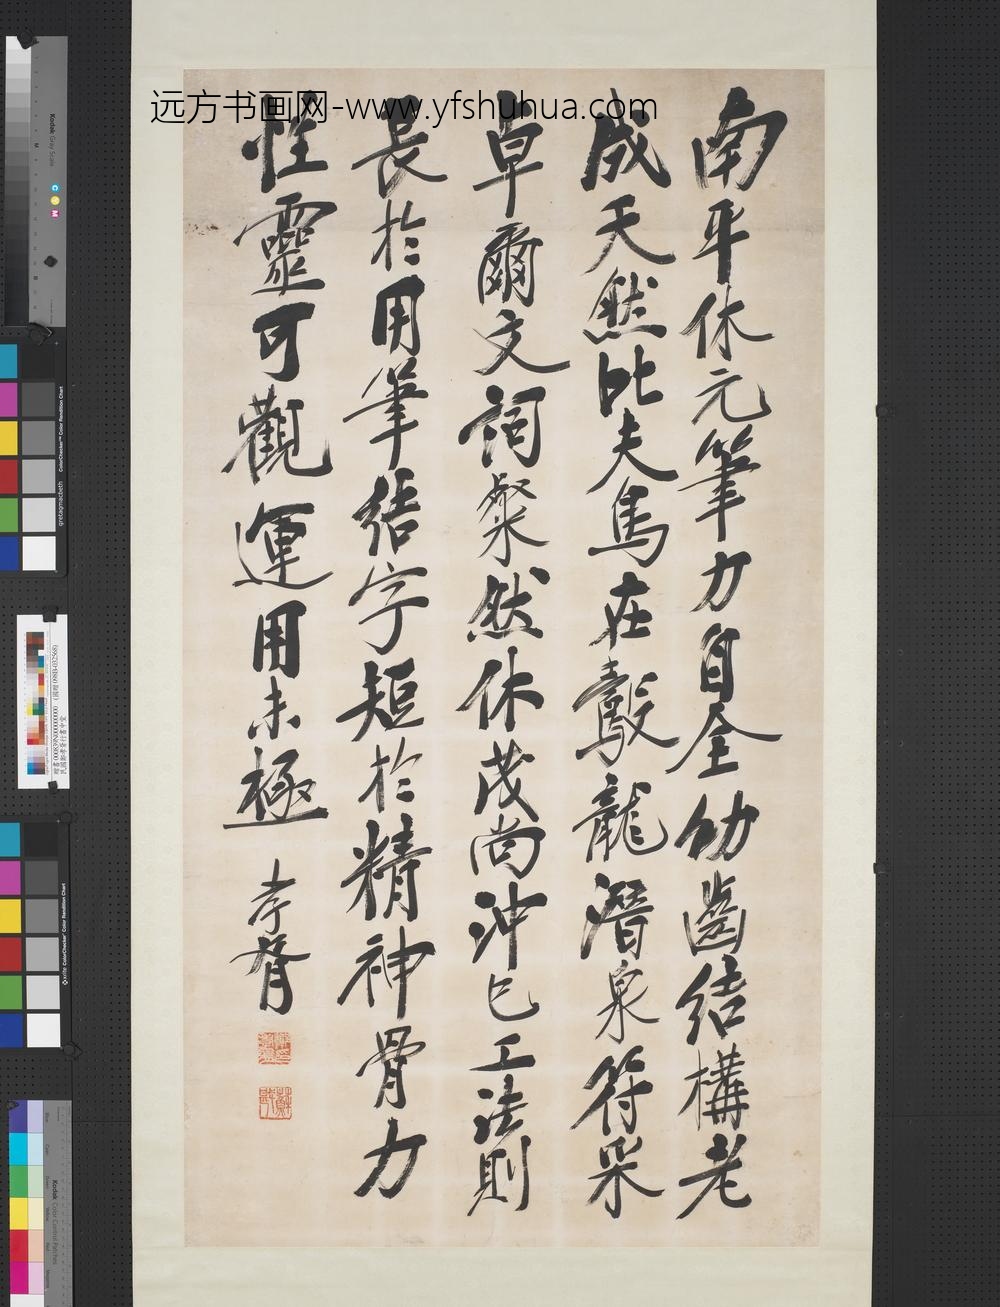 远方书画网-www.yfshuhua.com
南平休元筆力自全幼齒結構老
成天然比夫馬在鷇龍潛泉符采
卓爾文詞粲然休茂尚沖已工法則
長於用筆結字短於精神骨力
性靈可觀運用未極
孝胥